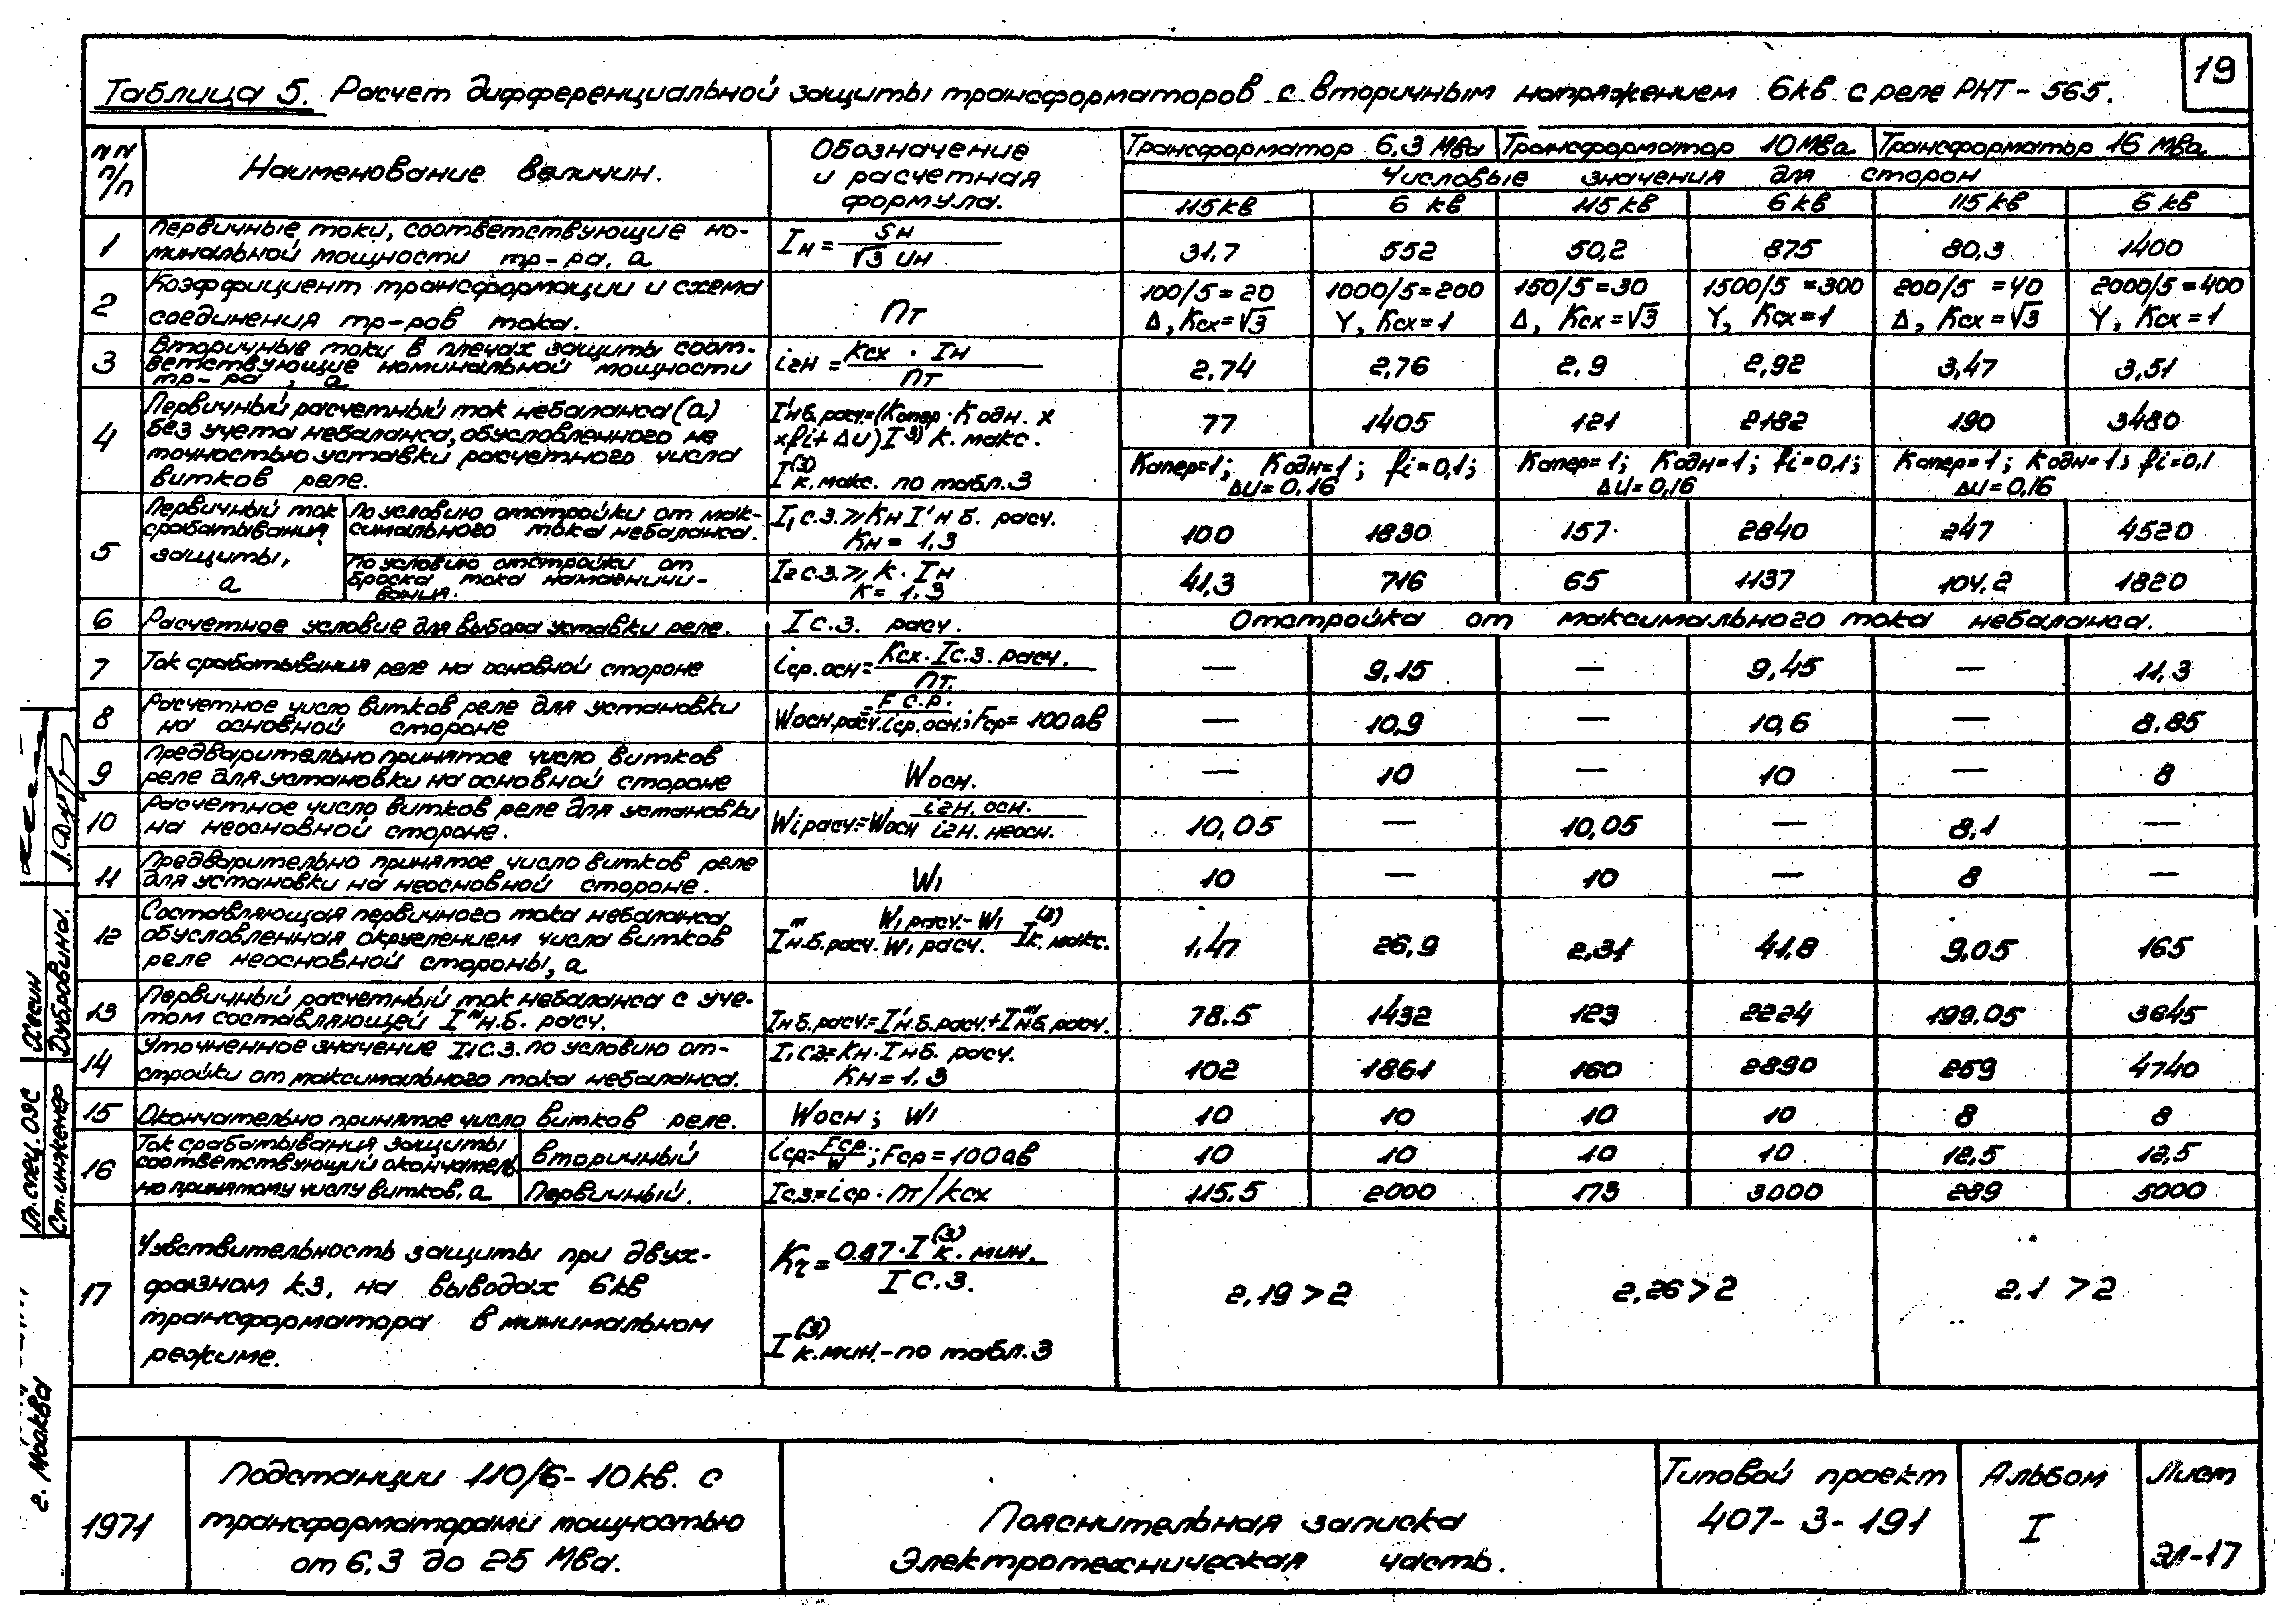 19
Таблица 5. Расчет дифференциальной защиты трансформаторов с вторичным напряжением 6кв с реле РНТ-565.
NN п/п
Наименование величин.
Обозначение и расчетная формула.
Трансформатор 6,3 Мва
Трансформатор 10 Мва
Трансформатор 16 Мва
Числовые значения для сторон
115кв 6 кв 115кв 6кв 115кв 6 кв
1 Первичные токи, соответствующие но-
минальной мощности тр-ра, а
Iн = Sн / √3 Uн
31,7 552 50,2 875 80,3 1400
2 Коэффициент трансформации и схема
соединения тр-ров тока.
nт
100/5=20 1000/5=200 150/5=30 1500/5=300 200/5=40 2000/5=400
Δ, Kсх=√3 Y, Kсх=1 Δ, Kсх=√3 Y, Kсх=1 Δ, Kсх=√3 Y, Kсх=1
3 Вторичные токи в плечах защиты соот-
ветствующие номинальной мощности
тр-ра, а
i2н = Kсх · Iн / nт
2,74 2,76 2,9 2,92 3,47 3,51
4 Первичный расчетный ток небаланса (а)
без учета небаланса, обусловленного не
точностью уставки расчетного числа
витков реле.
I'н.б. расч.=(Kапер·Kодн. x
x fi+ΔU) I(3) к. макс.
I(3) к. макс. по табл.3
77 1405 121 2182 190 3480
Kапер=1; Kодн=1; fi=0,1; ΔU=0,16
Kапер=1; Kодн=1; fi=0,1; ΔU=0,16
Kапер=1; Kодн=1; fi=0,1 ΔU=0,16
5 Первичный ток
срабатывания
защиты,
а
По условию отстройки от мак-
симального тока небаланса.
I1 с.з.⩾Kн I'н б. расч.
Kн = 1,3
100 1830 157 2840 247 4520
По условию отстройки от
броска тока намагничи-
вания.
I2 с.з.⩾ K·Iн
K = 1,3
41,3 716 65 1137 104,2 1820
6 Расчетное условие для выбора уставки реле.
I с.з. расч.
Отстройка от максимального тока небаланса.
7 Ток срабатывания реле на основной стороне
iср.осн= Kсх·Iс.з. расч. / nт.
— 9,15 — 9,45 — 11,3
8 Расчетное число витков реле для установки
на основной стороне
Wосн.расч.= F с.р. / iср.осн.; Fср=100ав
— 10,9 — 10,6 — 8,85
9 Предварительно принятое число витков
реле для установки на основной стороне
Wосн.
— 10 — 10 — 8
10 Расчетное число витков реле для установки
на неосновной стороне.
WIрасч=Wосн i2н. осн. / i2н. неосн.
10,05 — 10,05 — 8,1 —
11 Предварительно принятое число витков реле
для установки на неосновной стороне.
WI
10 — 10 — 8 —
12 Составляющая первичного тока небаланса,
обусловленная округлением числа витков
реле неосновной стороны, а
I'''н.б.расч. WI расч.- WI / WI расч. I(3) к. макс.
1,47 26,9 2,31 41,8 9,05 165
13 Первичный расчетный ток небаланса с уче-
том составляющей I'''н.б. расч.
Iн б. расч.=I'н.б. расч.+I'''н.б. расч.
78.5 1432 123 2224 199,05 3645
14 Уточненное значение I1с.з. по условию от-
стройки от максимального тока небаланса.
I1 сз=Kн·Iн б. расч.
Kн = 1,3
102 1861 160 2890 259 4740
15 Окончательно принятое число витков реле.
Wосн; WI
10 10 10 10 8 8
16 Ток срабатывания защиты
соответствующий окончатель
но принятому числу витков, а
Вторичный
iср= Fср / W; Fср=100ав
10 10 10 10 12,5 12,5
Первичный.
Iс.з.=iср·nт/kсх
115,5 2000 173 3000 289 5000
17 Чувствительность защиты при двух-
фазном к.з. на выводах 6кв
трансформатора в минимальном
режиме.
Kч= 0.87·I(3) к. мин. / I с.з.
I(3) к.мин.-по табл.3
2,19 > 2 2,26 > 2 2,1 > 2
Гл.спец. ОЭС Хесин
Ст.инженер Дубровина.
г. Москва
1971
Подстанции 110/6-10кв. с
трансформаторами мощностью
от 6,3 до 25 Мва.
Пояснительная записка
Электротехническая часть.
Типовой проект
407-3-191
Альбом
I
Лист
ЭЛ-17